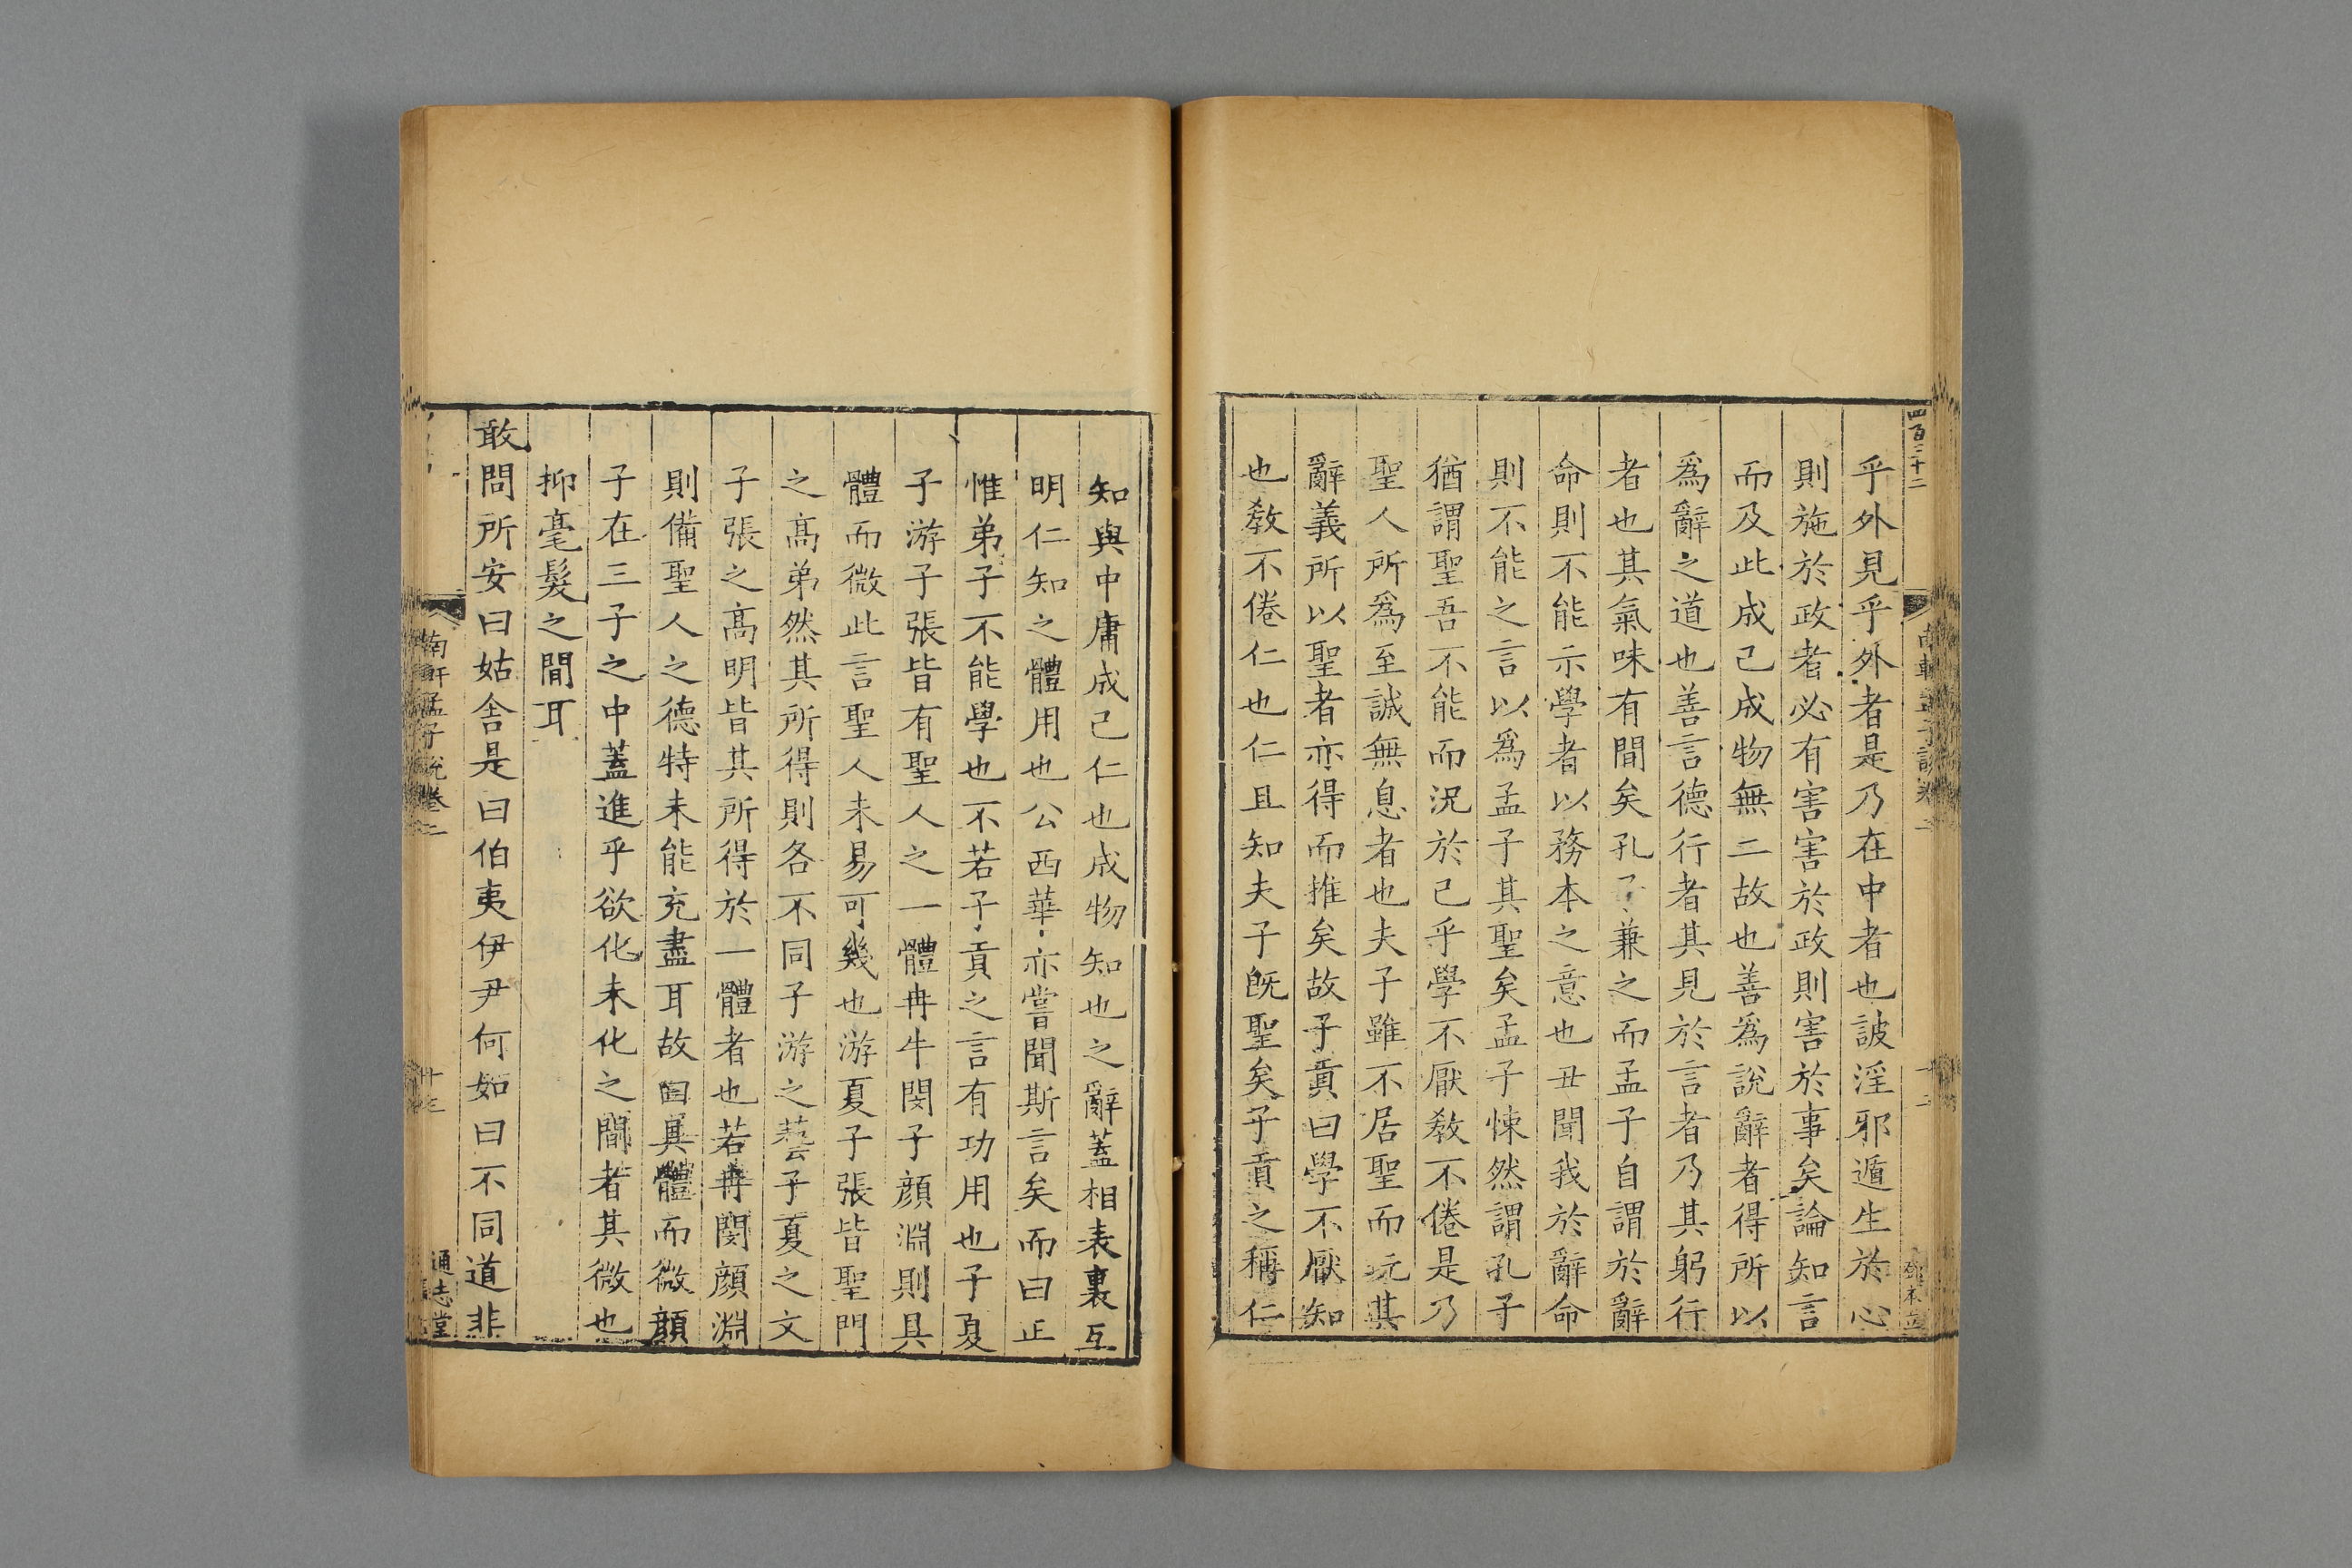 四百三十二
乎外見乎外者是乃在中者也詖淫邪遁生於心
則施於政者必有害害於政則害於事矣論知言
而及此成己成物無二故也善爲說辭者得所以
爲辭之道也善言德行者其見於言者乃其躬行
者也其氣味有間矣孔子兼之而孟子自謂於辭
命則不能示學者以務本之意也丑聞我於辭命
則不能之言以爲孟子其聖矣孟子悚然謂孔子
猶謂聖吾不能而況於己乎學不厭敎不倦是乃
聖人所爲至誠無息者也夫子雖不居聖而玩其
辭義所以聖者亦得而推矣故子貢曰學不厭知
也敎不倦仁也仁且知夫子旣聖矣子貢之稱仁
知與中庸成己仁也成物知也之辭蓋相表裏互
明仁知之體用也公西華亦嘗聞斯言矣而曰正
惟弟子不能學也不若子貢之言有功用也子夏
子游子張皆有聖人之一體冉牛閔子顏淵則具
體而微此言聖人未易可幾也游夏子張皆聖門
之高弟然其所得則各不同子游之藝子夏之文
子張之高明皆其所得於一體者也若冉閔顏淵
則備聖人之德特未能充盡耳故曰具體而微顏
子在三子之中蓋進乎欲化未化之間者其微也
抑毫髮之間耳
敢問所安曰姑舍是曰伯夷伊尹何如曰不同道非
南軒孟子說卷二
十三
通志堂